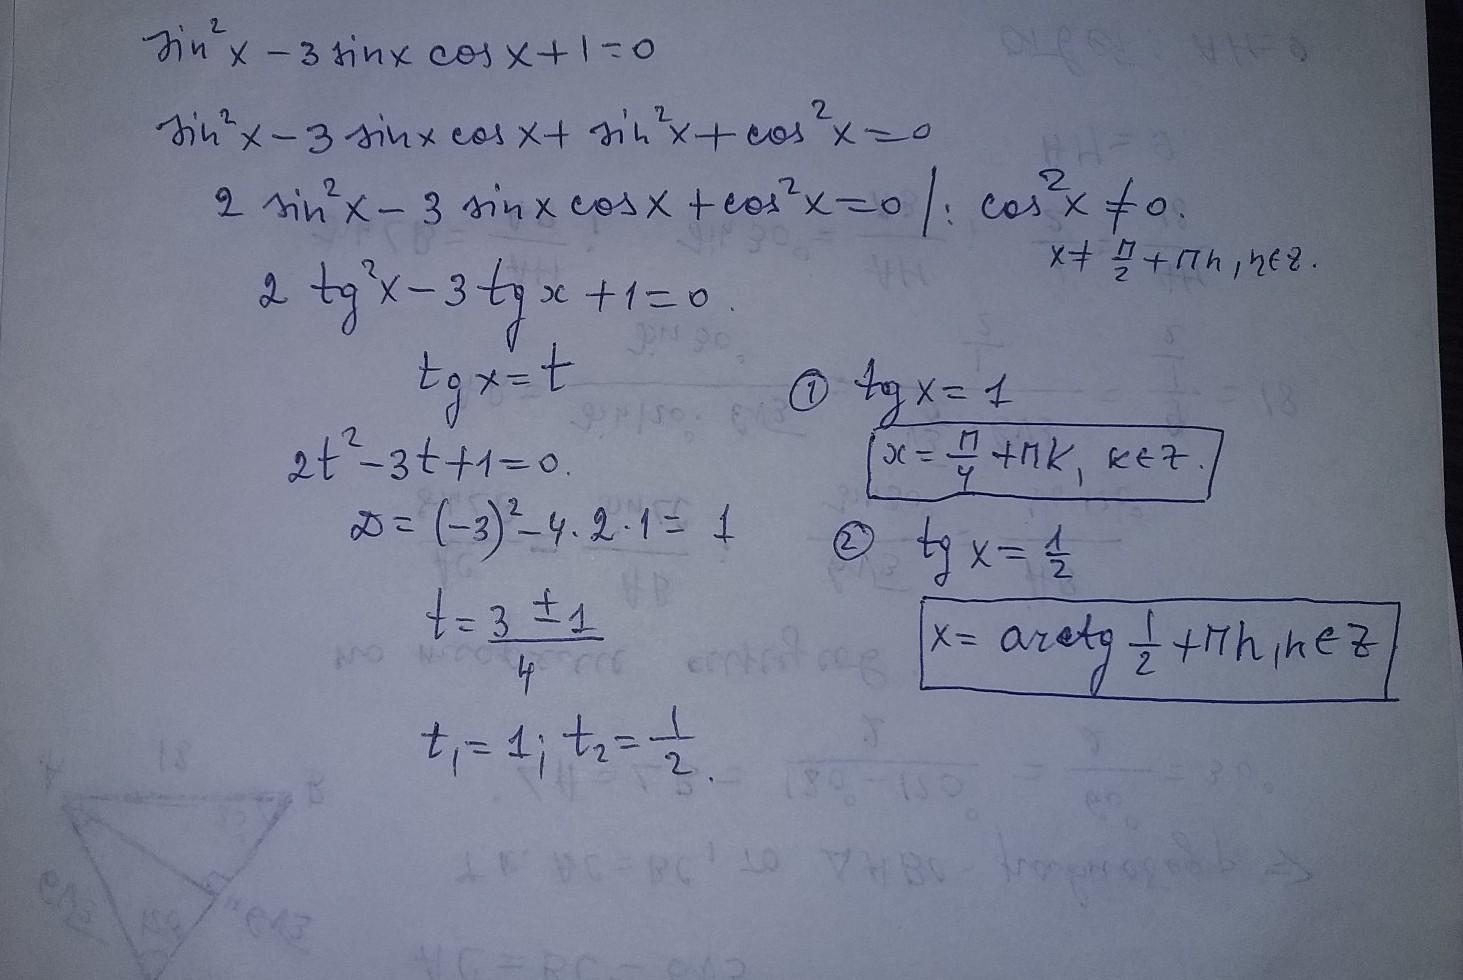 sin²x - 3 sinx cos x + 1 = 0
sin²x - 3 sinx cos x + sin²x + cos²x = 0
2 sin²x - 3 sinx cosx + cos²x = 0 | : cos²x ≠ 0.
x ≠ π/2 + πn, n ∈ Z.
2 tg²x - 3 tg x + 1 = 0.
tg x = t
2t² - 3t + 1 = 0.
D = (-3)² - 4 · 2 · 1 = 1
t = (3 ± 1)/4
t₁ = 1; t₂ = 1/2.
① tg x = 1
x = π/4 + πk, k ∈ Z.
② tg x = 1/2
x = arctg 1/2 + πn, n ∈ Z